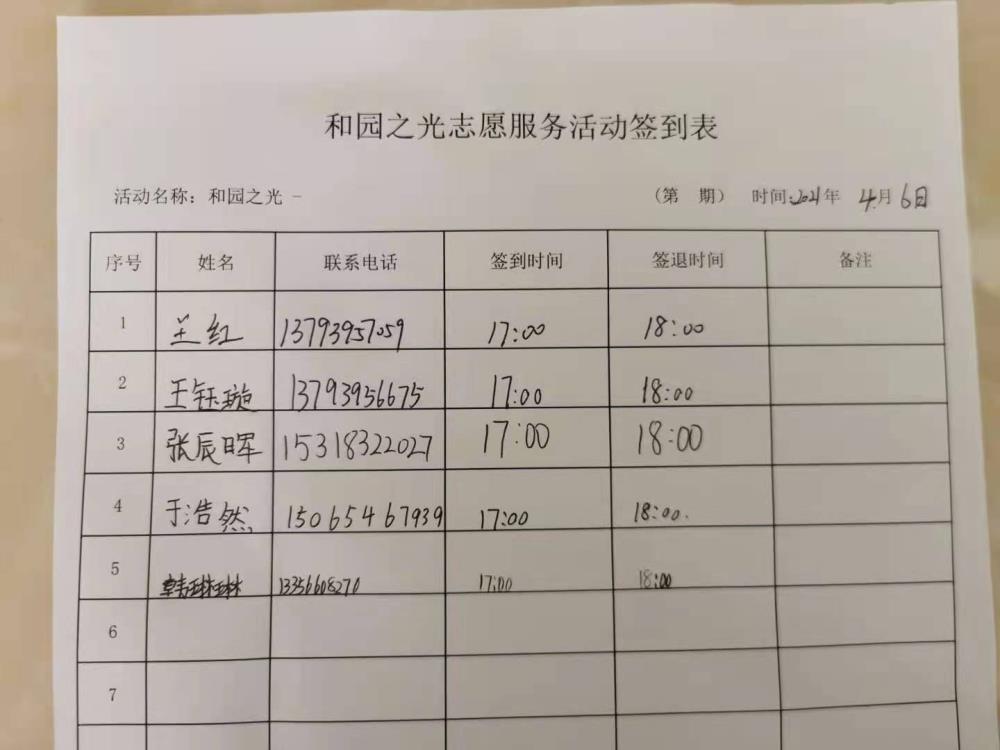 和园之光志愿服务活动签到表
活动名称：和园之光 - （第 期） 时间:2021年 4月6日
序号 姓名 联系电话 签到时间 签退时间 备注
1 王红 13793957059 17:00 18:00
2 王钰璇 13793956675 17:00 18:00
3 张辰晖 15318322027 17:00 18:00
4 于浩然 15065467939 17:00 18:00.
5 韩琳琳 13356608270 17:00 18:00
6
7